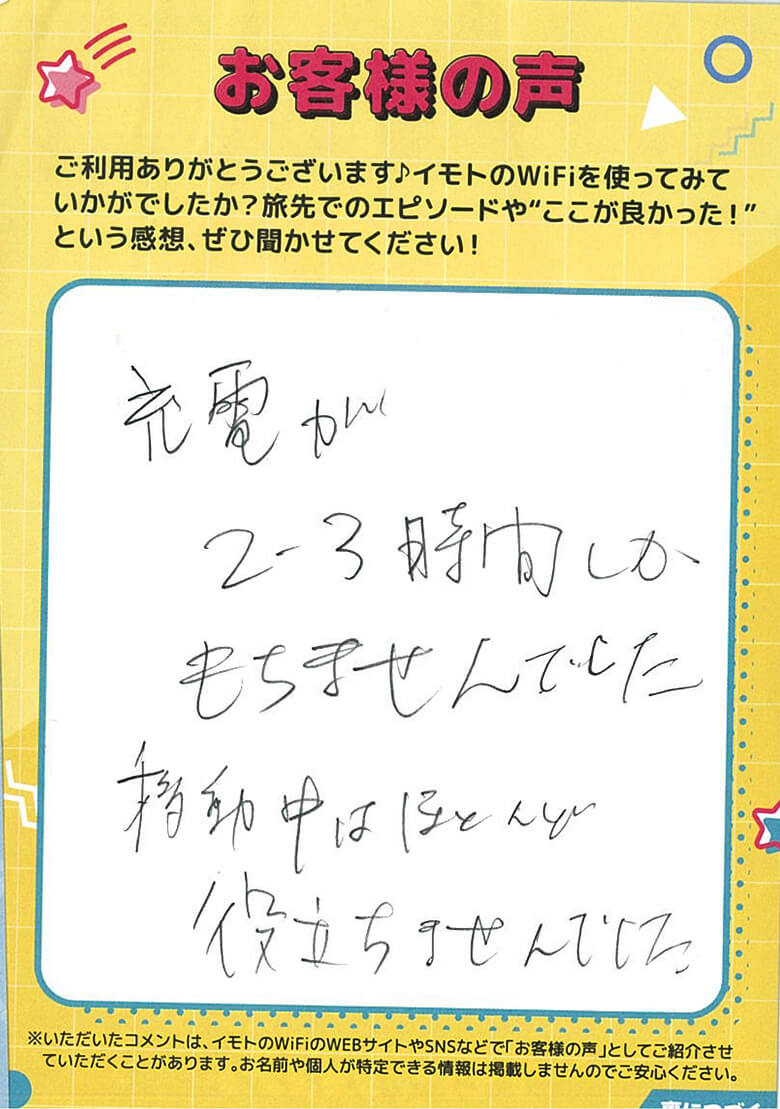 お客様の声
ご利用ありがとうございます♪イモトのWiFiを使ってみて
いかがでしたか?旅先でのエピソードや“ここが良かった!”
という感想、ぜひ聞かせてください!
充電が
2-3時間しか
もちませんでした
移動中はほとんど
役立ちませんでした
※いただいたコメントは、イモトのWiFiのWEBサイトやSNSなどで「お客様の声」としてご紹介させ
ていただくことがあります。お名前や個人が特定できる情報は掲載しませんのでご安心ください。